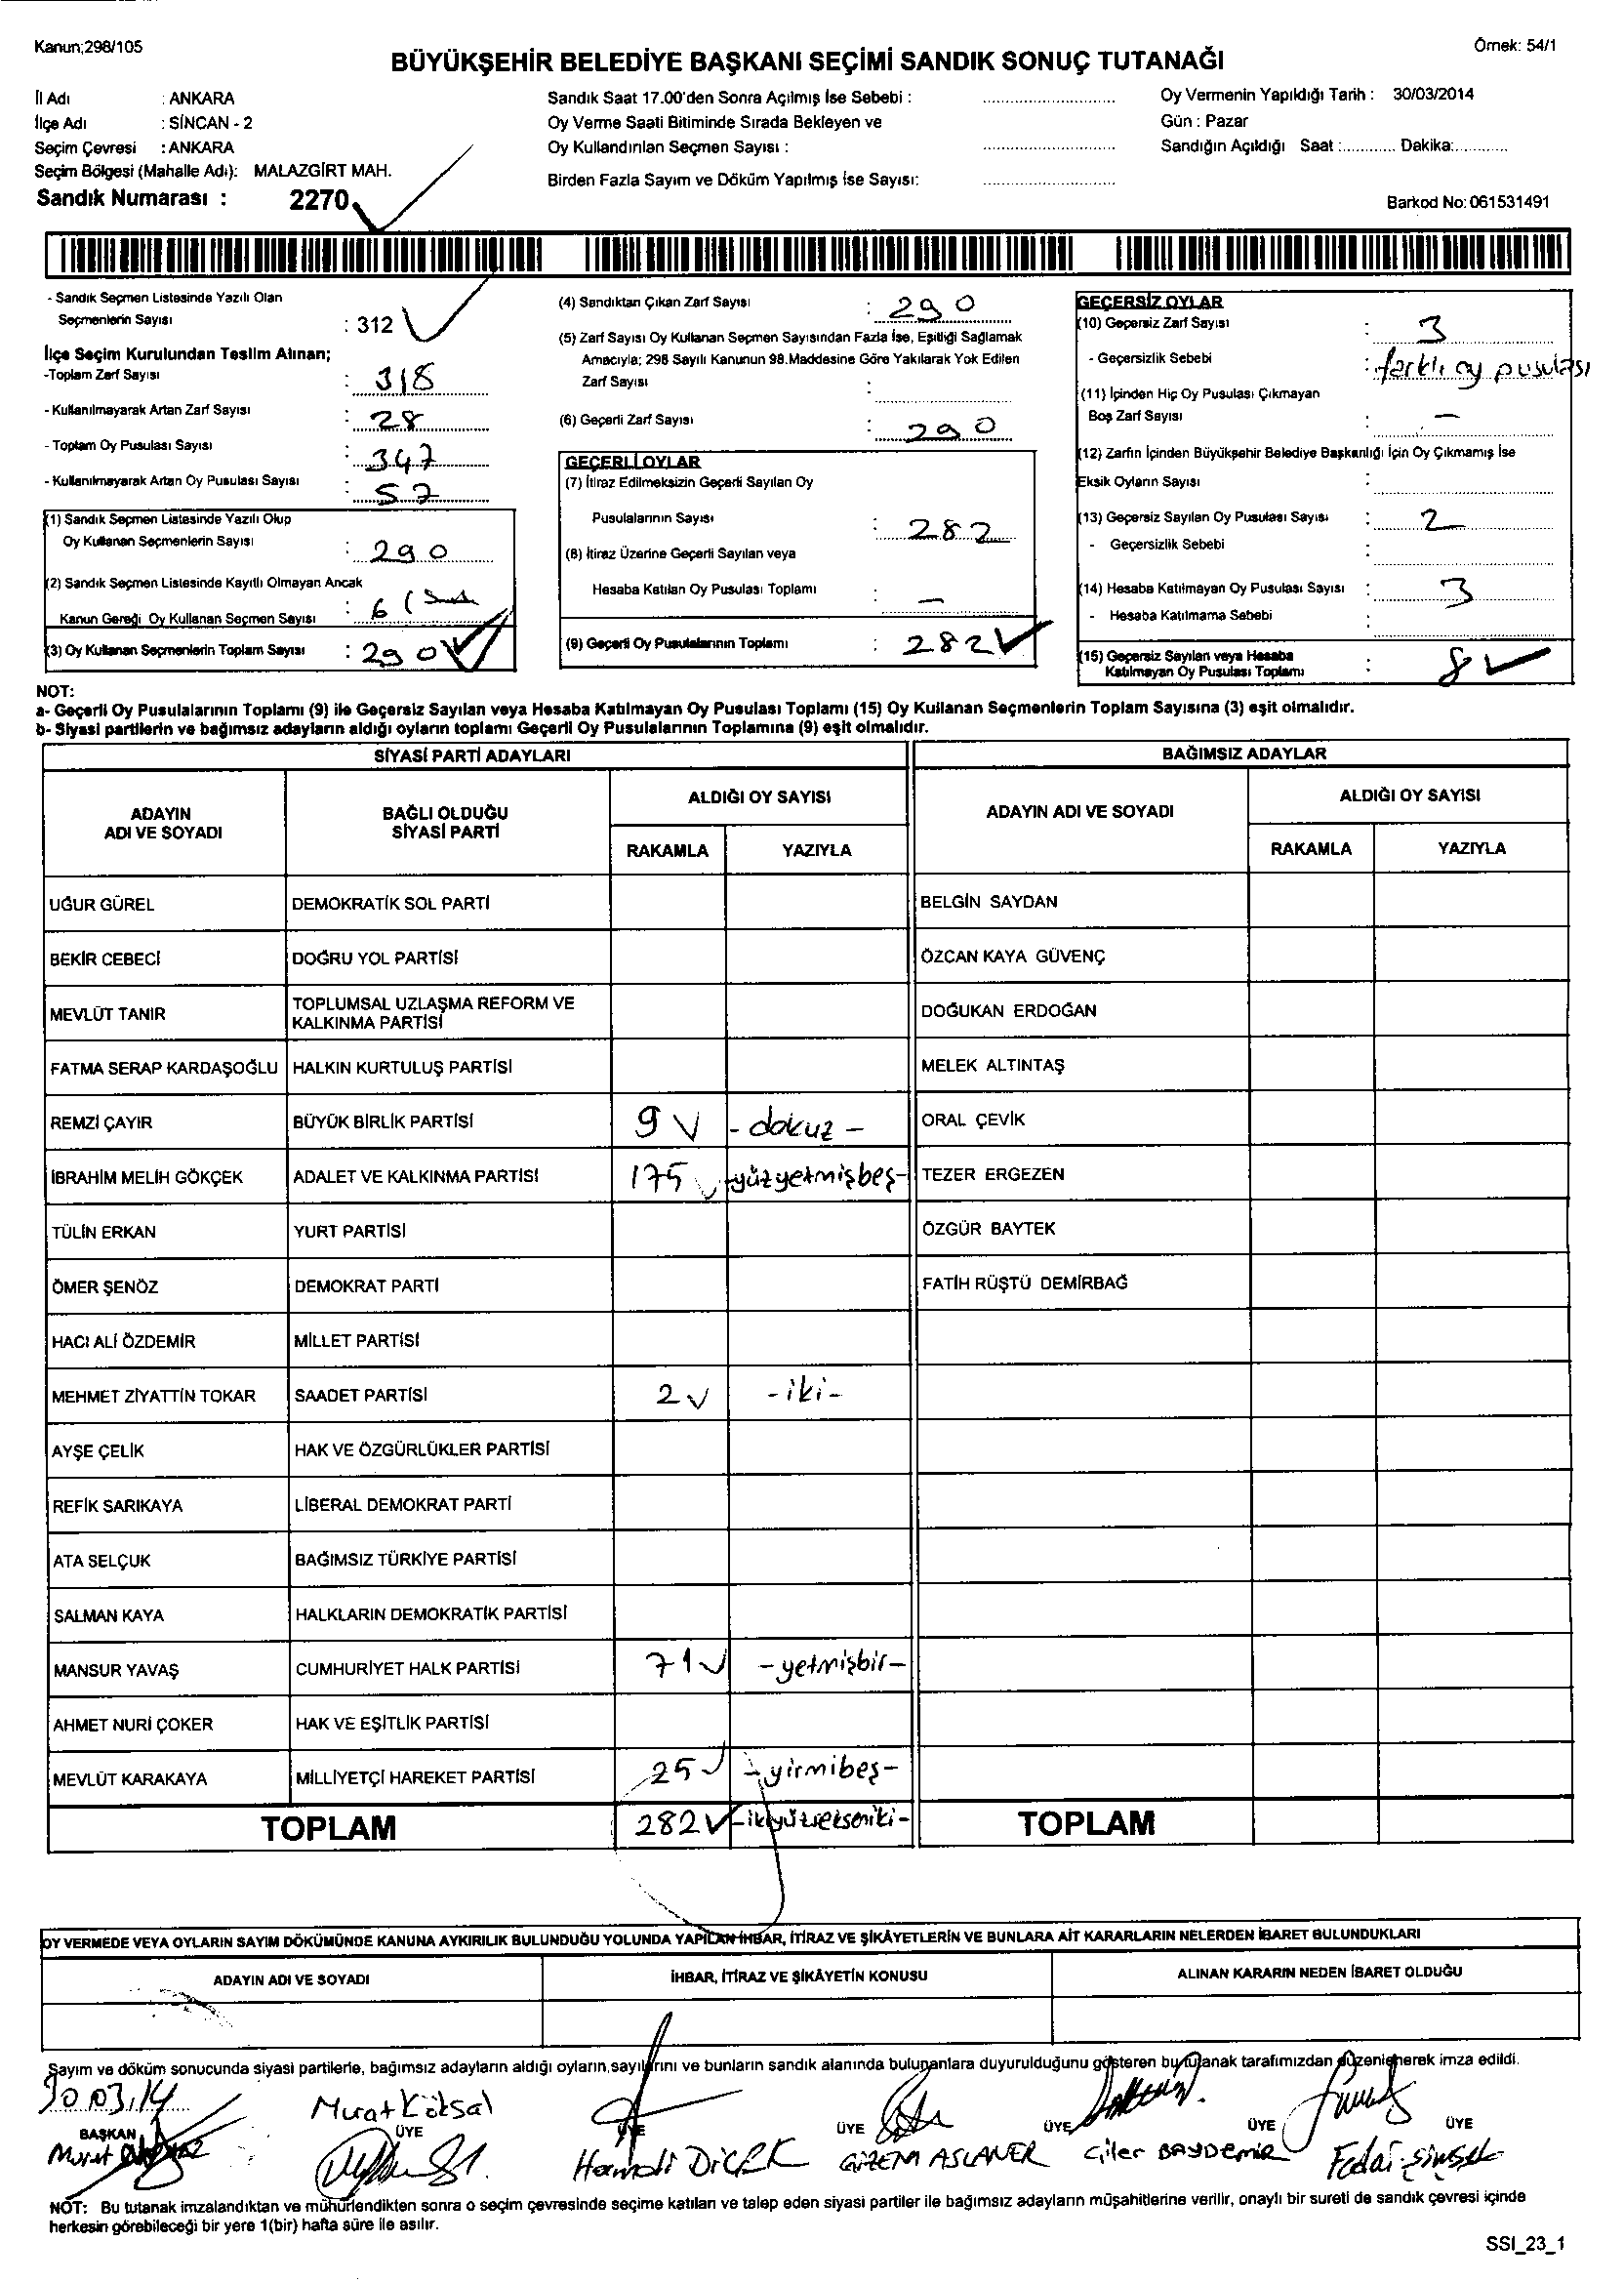 Kanun;298/105
Örnek: 54/1
BÜYÜKŞEHİR BELEDİYE BAŞKANI SEÇİMİ SANDIK SONUÇ TUTANAĞI
İl Adı : ANKARA
İlçe Adı : SİNCAN - 2
Seçim Çevresi : ANKARA
Seçim Bölgesi (Mahalle Adı): MALAZGİRT MAH.
Sandık Numarası : 2270
Sandık Saat 17.00'den Sonra Açılmış İse Sebebi :
Oy Verme Saati Bitiminde Sırada Bekleyen ve
Oy Kullandırılan Seçmen Sayısı :
Birden Fazla Sayım ve Döküm Yapılmış İse Sayısı:
Oy Vermenin Yapıldığı Tarih : 30/03/2014
Gün : Pazar
Sandığın Açıldığı Saat :............ Dakika:............
Barkod No: 061531491
- Sandık Seçmen Listesinde Yazılı Olan
Seçmenlerin Sayısı : 312
İlçe Seçim Kurulundan Teslim Alınan;
-Toplam Zarf Sayısı : 318
- Kullanılmayarak Artan Zarf Sayısı : 28
- Toplam Oy Pusulası Sayısı : 347
- Kullanılmayarak Artan Oy Pusulası Sayısı : 57
(1) Sandık Seçmen Listesinde Yazılı Olup
Oy Kullanan Seçmenlerin Sayısı : 290
(2) Sandık Seçmen Listesinde Kayıtlı Olmayan Ancak
Kanun Gereği Oy Kullanan Seçmen Sayısı : 6
(3) Oy Kullanan Seçmenlerin Toplam Sayısı : 290
(4) Sandıktan Çıkan Zarf Sayısı : 290
(5) Zarf Sayısı Oy Kullanan Seçmen Sayısından Fazla İse, Eşitliği Sağlamak
Amacıyla; 298 Sayılı Kanunun 98.Maddesine Göre Yakılarak Yok Edilen
Zarf Sayısı :
(6) Geçerli Zarf Sayısı : 290
GEÇERLİ OYLAR
(7) İtiraz Edilmeksizin Geçerli Sayılan Oy
Pusulalarının Sayısı : 282
(8) İtiraz Üzerine Geçerli Sayılan veya
Hesaba Katılan Oy Pusulası Toplamı : -
(9) Geçerli Oy Pusulalarının Toplamı : 282
GEÇERSİZ OYLAR
(10) Geçersiz Zarf Sayısı : 3
- Geçersizlik Sebebi : farklı oy pusulası
(11) İçinden Hiç Oy Pusulası Çıkmayan
Boş Zarf Sayısı : -
(12) Zarfın İçinden Büyükşehir Belediye Başkanlığı İçin Oy Çıkmamış İse
Eksik Oyların Sayısı :
(13) Geçersiz Sayılan Oy Pusulası Sayısı : 2
- Geçersizlik Sebebi :
(14) Hesaba Katılmayan Oy Pusulası Sayısı : 3
- Hesaba Katılmama Sebebi :
(15) Geçersiz Sayılan veya Hesaba
Katılmayan Oy Pusulası Toplamı : 8
NOT:
a- Geçerli Oy Pusulalarının Toplamı (9) ile Geçersiz Sayılan veya Hesaba Katılmayan Oy Pusulası Toplamı (15) Oy Kullanan Seçmenlerin Toplam Sayısına (3) eşit olmalıdır.
b- Siyasi partilerin ve bağımsız adayların aldığı oyların toplamı Geçerli Oy Pusulalarının Toplamına (9) eşit olmalıdır.
SİYASİ PARTİ ADAYLARI BAĞIMSIZ ADAYLAR
ADAYIN ADI VE SOYADI BAĞLI OLDUĞU SİYASİ PARTİ ALDIĞI OY SAYISI ADAYIN ADI VE SOYADI ALDIĞI OY SAYISI
RAKAMLA YAZIYLA RAKAMLA YAZIYLA
UĞUR GÜREL DEMOKRATİK SOL PARTİ BELGİN SAYDAN
BEKİR CEBECİ DOĞRU YOL PARTİSİ ÖZCAN KAYA GÜVENÇ
MEVLÜT TANIR TOPLUMSAL UZLAŞMA REFORM VE KALKINMA PARTİSİ DOĞUKAN ERDOĞAN
FATMA SERAP KARDAŞOĞLU HALKIN KURTULUŞ PARTİSİ MELEK ALTINTAŞ
REMZİ ÇAYIR BÜYÜK BİRLİK PARTİSİ 9 - dokuz - ORAL ÇEVİK
İBRAHİM MELİH GÖKÇEK ADALET VE KALKINMA PARTİSİ 175 -yüzyetmişbeş- TEZER ERGEZEN
TÜLİN ERKAN YURT PARTİSİ ÖZGÜR BAYTEK
ÖMER ŞENÖZ DEMOKRAT PARTİ FATİH RÜŞTÜ DEMİRBAĞ
HACI ALİ ÖZDEMİR MİLLET PARTİSİ
MEHMET ZİYATTİN TOKAR SAADET PARTİSİ 2 -iki-
AYŞE ÇELİK HAK VE ÖZGÜRLÜKLER PARTİSİ
REFİK SARIKAYA LİBERAL DEMOKRAT PARTİ
ATA SELÇUK BAĞIMSIZ TÜRKİYE PARTİSİ
SALMAN KAYA HALKLARIN DEMOKRATİK PARTİSİ
MANSUR YAVAŞ CUMHURİYET HALK PARTİSİ 71 -yetmişbir-
AHMET NURİ ÇOKER HAK VE EŞİTLİK PARTİSİ
MEVLÜT KARAKAYA MİLLİYETÇİ HAREKET PARTİSİ 25 -yirmibeş-
TOPLAM 282 -ikiyüzsekseniki- TOPLAM
OY VERMEDE VEYA OYLARIN SAYIM DÖKÜMÜNDE KANUNA AYKIRILIK BULUNDUĞU YOLUNDA YAPILAN İHBAR, İTİRAZ VE ŞİKÂYETLERİN VE BUNLARA AİT KARARLARIN NELERDEN İBARET BULUNDUKLARI
ADAYIN ADI VE SOYADI İHBAR, İTİRAZ VE ŞİKÂYETİN KONUSU ALINAN KARARIN NEDEN İBARET OLDUĞU
Sayım ve döküm sonucunda siyasi partilerle, bağımsız adayların aldığı oyların,sayılarını ve bunların sandık alanında bulunanlara duyurulduğunu gösteren bu tutanak tarafımızdan düzenlenerek imza edildi.
30.03.14 Murat Köksal
BAŞKAN ÜYE ÜYE ÜYE ÜYE ÜYE ÜYE
Murat Hamdi DİCLE GİZEM ASLANER Çiler BAYDEMİR Fedai Şimşek
NOT: Bu tutanak imzalandıktan ve mühürlendikten sonra o seçim çevresinde seçime katılan ve talep eden siyasi partiler ile bağımsız adayların müşahitlerine verilir, onaylı bir sureti de sandık çevresi içinde
herkesin görebileceği bir yere 1(bir) hafta süre ile asılır.
SSI_23_1